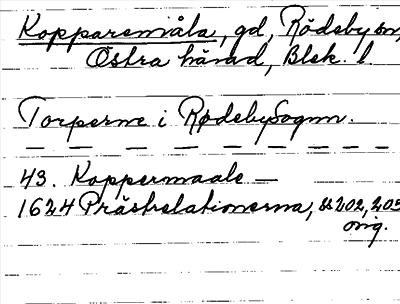 Kopparemåla, gd, Rödeby sn,
Östra härad, Blek. l.
Torperne i Rødeby Sognn.
43. Koppermaale —
1624 Prästrelationerna, s. 202, 205
orig.